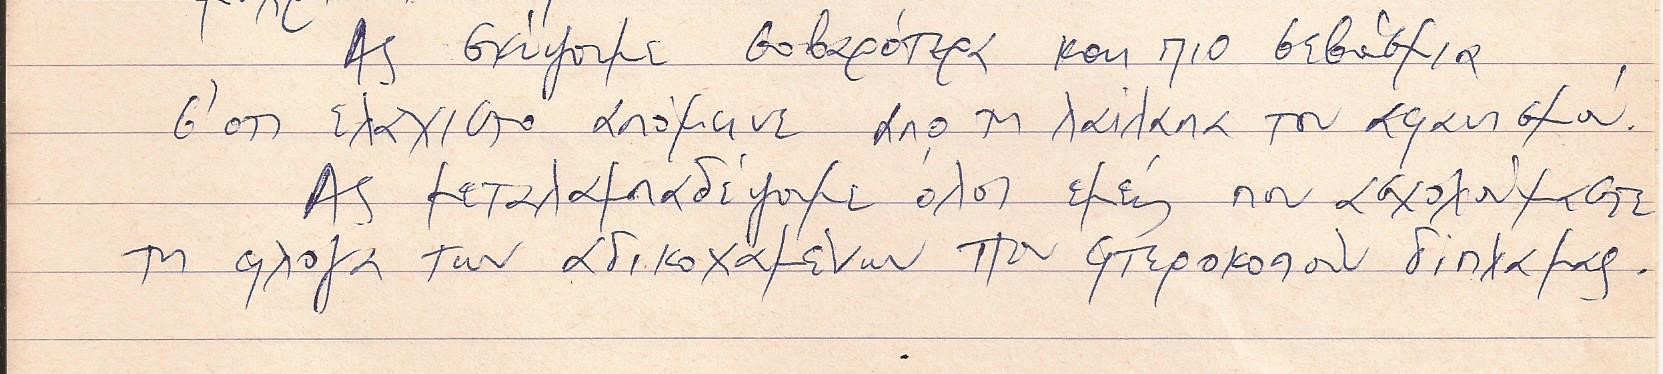 Ας σκύψουμε σοβαρότερα και πιο σεβάσμια
σ' ότι ελάχιστο απόμεινε απο τη λαίλαπα του αφανισμού.
Ας μεταλαμπαδέψουμε όλοι εμείς που ασχολούμαστε
τη φλογα των αδικοχαμένων που φτεροκοπούν δίπλα μας.